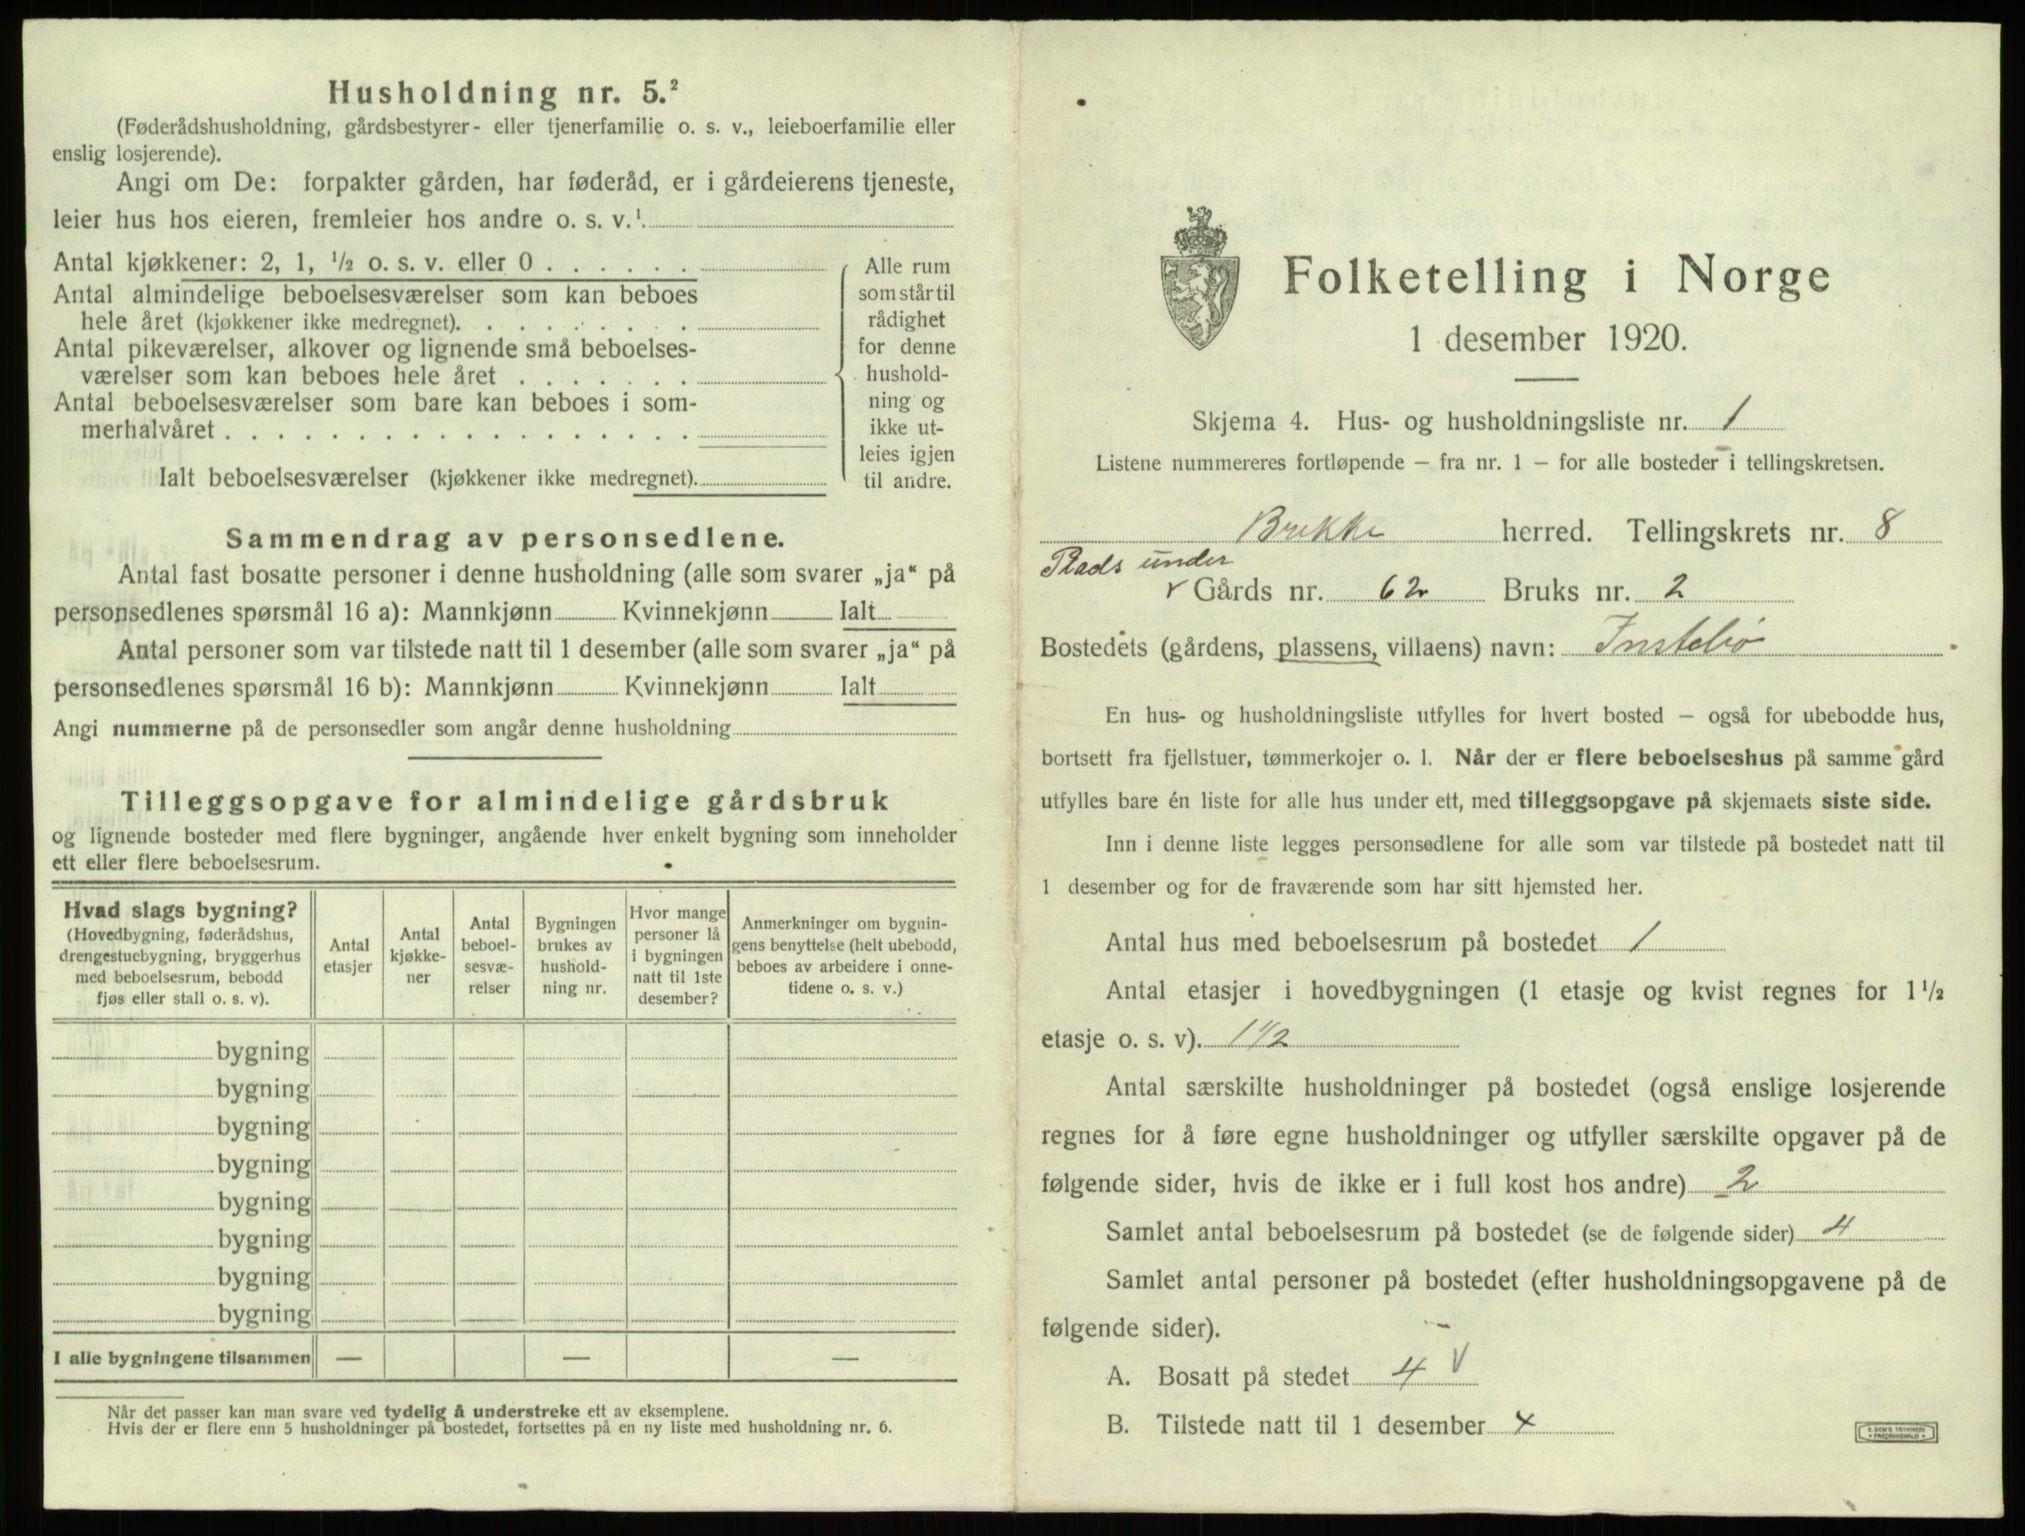 Husholdning nr. 5.²
(Føderådshusholdning, gårdsbestyrer- eller tjenerfamilie o. s. v., leieboerfamilie eller
enslig losjerende).
Angi om De: forpakter gården, har føderåd, er i gårdeierens tjeneste,
leier hus hos eieren, fremleier hos andre o. s. v.¹
Antal kjøkkener: 2, 1, ½ o. s. v. eller 0 . . . . . .
Antal almindelige beboelsesværelser som kan beboes
hele året (kjøkkener ikke medregnet). . . . . . . . .
Antal pikeværelser, alkover og lignende små beboelses-
værelser som kan beboes hele året . . . . . . .
Antal beboelsesværelser som bare kan beboes i som-
merhalvåret . . . . . . . . . . . . . . . . . .
Ialt beboelsesværelser (kjøkkener ikke medregnet).
Alle rum
som står til
rådighet
for denne
hushold-
ning og
ikke ut-
leies igjen
til andre.
Sammendrag av personsedlene.
Antal fast bosatte personer i denne husholdning (alle som svarer „ja“ på
personsedlenes spørsmål 16 a): Mannkjønn Kvinnekjønn Ialt
Antal personer som var tilstede natt til 1 desember (alle som svarer „ja“ på
personsedlenes spørsmål 16 b): Mannkjønn Kvinnekjønn Ialt
Angi nummerne på de personsedler som angår denne husholdning
Tilleggsopgave for almindelige gårdsbruk
og lignende bosteder med flere bygninger, angående hver enkelt bygning som inneholder
ett eller flere beboelsesrum.
Hvad slags bygning?
(Hovedbygning, føderådshus,
drengestuebygning, bryggerhus
med beboelsesrum, bebodd
fjøs eller stall o. s. v).
Antal
etasjer
Antal
kjøkke-
ner
Antal
beboel-
sesvæ-
relser
Bygningen
brukes av
hushold-
ning nr.
Hvor mange
personer lå
i bygningen
natt til 1ste
desember?
Anmerkninger om bygnin-
gens benyttelse (helt ubebodd,
beboes av arbeidere i onne-
tidene o. s. v.)
bygning
bygning
bygning
bygning
bygning
bygning
bygning
bygning
I alle bygningene tilsammen — — —
Når det passer kan man svare ved tydelig å understreke ett av eksemplene.
Hvis der er flere enn 5 husholdninger på bostedet, fortsettes på en ny liste med husholdning nr. 6.
Folketelling i Norge
1 desember 1920.
Skjema 4. Hus- og husholdningsliste nr. 1
Listene nummereres fortløpende – fra nr. 1 – for alle bosteder i tellingskretsen.
Brekke herred. Tellingskrets nr. 8
Plads under
Gårds nr. 62 Bruks nr. 2
Bostedets (gårdens, plassens, villaens) navn: Instebø
En hus- og husholdningsliste utfylles for hvert bosted – også for ubebodde hus,
bortsett fra fjellstuer, tømmerkojer o. l. Når der er flere beboelseshus på samme gård
utfylles bare én liste for alle hus under ett, med tilleggsopgave på skjemaets siste side.
Inn i denne liste legges personsedlene for alle som var tilstede på bostedet natt til
1 desember og for de fraværende som har sitt hjemsted her.
Antal hus med beboelsesrum på bostedet 1
Antal etasjer i hovedbygningen (1 etasje og kvist regnes for 1½
etasje o. s. v). 1 1/2
Antal særskilte husholdninger på bostedet (også enslige losjerende
regnes for å føre egne husholdninger og utfyller særskilte opgaver på de
følgende sider, hvis de ikke er i full kost hos andre) 2
Samlet antal beboelsesrum på bostedet (se de følgende sider) 4
Samlet antal personer på bostedet (efter husholdningsopgavene på de
følgende sider).
A. Bosatt på stedet 4 V
B. Tilstede natt til 1 desember 4
E. SEM'S TRYKKERI
FREDRIKSHALD